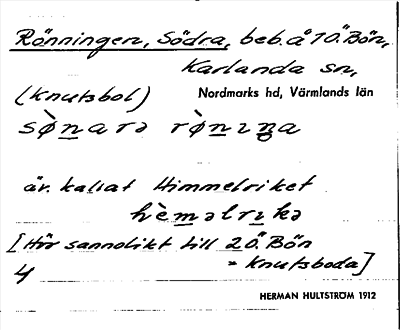 Rönningen, Södra, beb. å 1 Ö. Bön,
Karlanda sn,
(Knutsbol) Nordmarks hd, Värmlands län
sø̀narə rø̀nıŋa
äv. kallat Himmelriket
hɛ̀məlrıkə
[Hör sannolikt till 2 Ö. Bön
= Knutsboda]
4
HERMAN HULTSTRÖM 1912